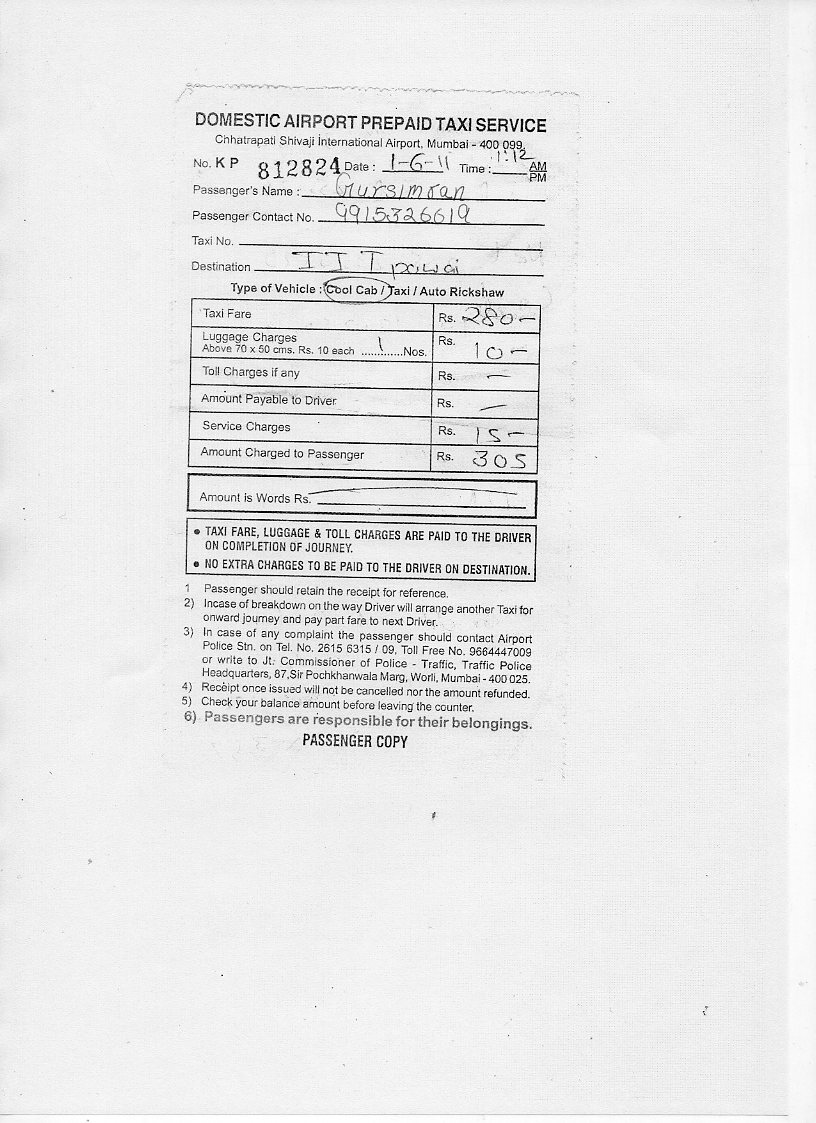 DOMESTIC AIRPORT PREPAID TAXI SERVICE
Chhatrapati Shivaji International Airport, Mumbai - 400 099.
No. K P 812824 Date : 1-6-11 Time : 1:12 AM
PM
Passenger's Name : Gursimran
Passenger Contact No. 9915326619
Taxi No.
Destination IIT powai
Type of Vehicle : Cool Cab / Taxi / Auto Rickshaw
Taxi Fare Rs. 280 -
Luggage Charges Rs.
Above 70 x 50 cms. Rs. 10 each ............. Nos. 1 10 -
Toll Charges if any Rs. -
Amount Payable to Driver Rs. -
Service Charges Rs. 15 -
Amount Charged to Passenger Rs. 305
Amount is Words Rs.
• TAXI FARE, LUGGAGE & TOLL CHARGES ARE PAID TO THE DRIVER
ON COMPLETION OF JOURNEY.
• NO EXTRA CHARGES TO BE PAID TO THE DRIVER ON DESTINATION.
1 Passenger should retain the receipt for reference.
2) Incase of breakdown on the way Driver will arrange another Taxi for
onward journey and pay part fare to next Driver.
3) In case of any complaint the passenger should contact Airport
Police Stn. on Tel. No. 2615 6315 / 09, Toll Free No. 9664447009
or write to Jt. Commissioner of Police - Traffic, Traffic Police
Headquarters, 87,Sir Pochkhanwala Marg, Worli, Mumbai - 400 025.
4) Receipt once issued will not be cancelled nor the amount refunded.
5) Check your balance amount before leaving the counter.
6) Passengers are responsible for their belongings.
PASSENGER COPY